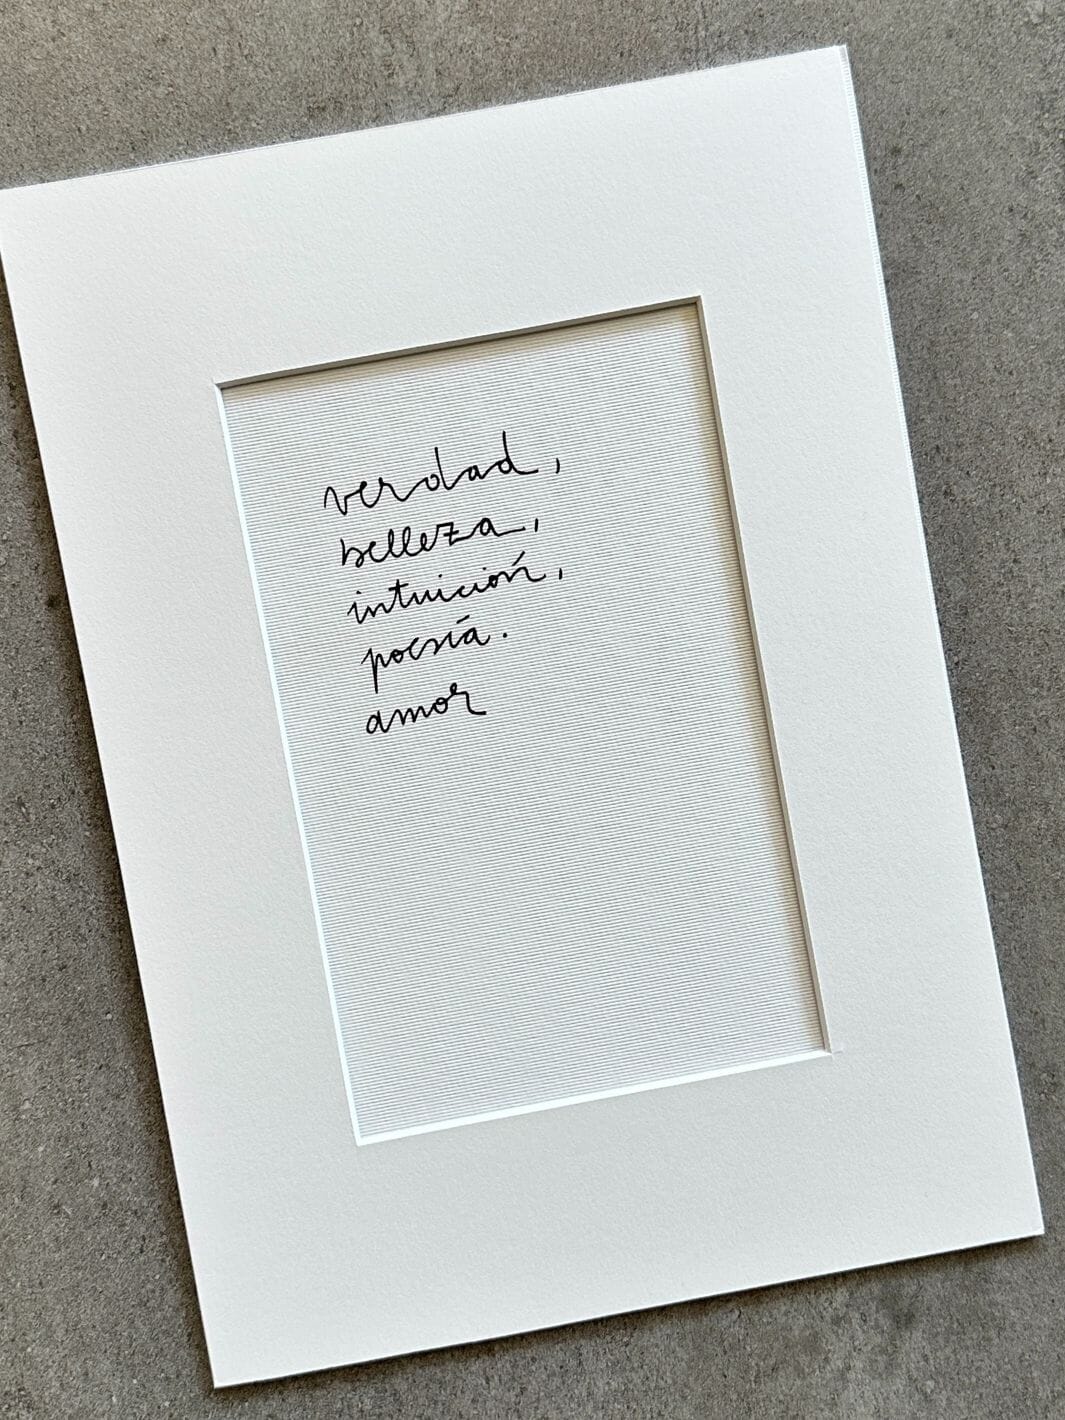 verdad,
belleza,
intuición,
poesía.
amor